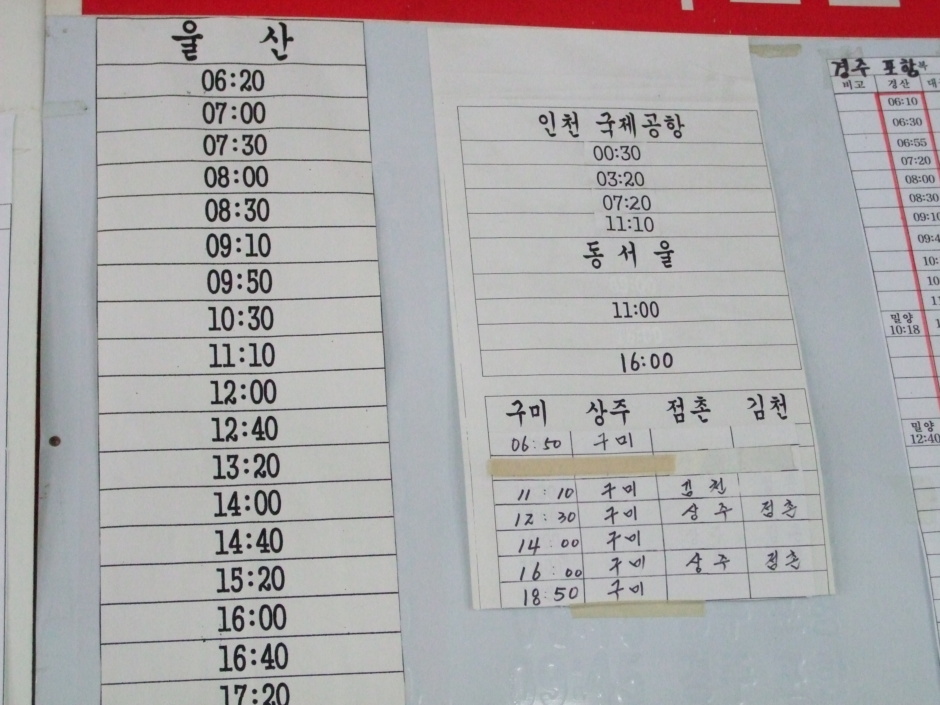 울 산
06:20
07:00
07:30
08:00
08:30
09:10
09:50
10:30
11:10
12:00
12:40
13:20
14:00
14:40
15:20
16:00
16:40
17:20
인천 국제공항
00:30
03:20
07:20
11:10
동 서 울
11:00
16:00
구미 상주 점촌 김천
06:50 구미
11:10 구미 김천
12:30 구미 상주 점촌
14:00 구미
16:00 구미 상주 점촌
18:50 구미
경주 포항
비고 경산
06:10
06:30
06:55
07:20
08:00
08:30
밀양
10:18
밀양
12:40